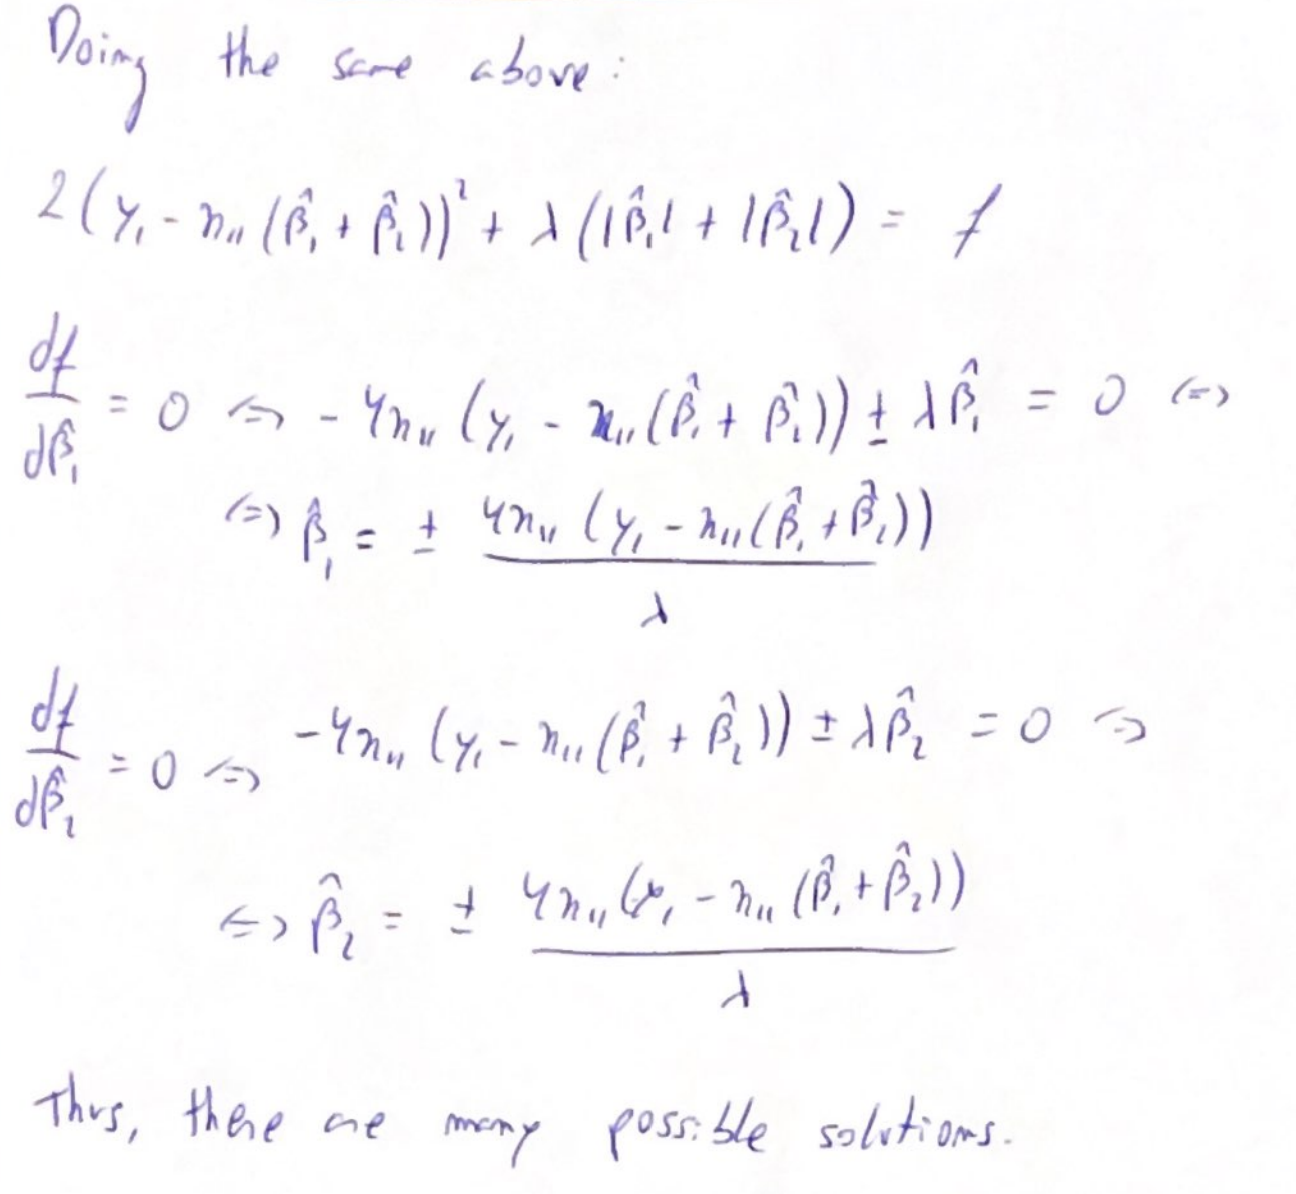 Doing the same above:
2(y₁ - x₁₁(β̂₁ + β̂₂))² + λ(|β̂₁| + |β̂₂|) = f
df/dβ̂₁ = 0 <=> -4x₁₁(y₁ - x₁₁(β̂₁ + β̂₂)) ± λβ̂₁ = 0 <=>
<=> β̂₁ = ± 4x₁₁(y₁ - x₁₁(β̂₁ + β̂₂)) / λ
df/dβ̂₂ = 0 <=> -4x₁₁(y₁ - x₁₁(β̂₁ + β̂₂)) ± λβ̂₂ = 0 =>
<=> β̂₂ = ± 4x₁₁(y₁ - x₁₁(β̂₁ + β̂₂)) / λ
Thus, there are many possible solutions.